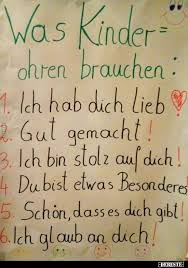 Was Kinder=
ohren brauchen:
1. Ich hab dich lieb
2. Gut gemacht!
3. Ich bin stolz auf dich!
4 Du bist etwas Besonderes
5. Schön, dass es dich gibt!
6. Ich glaub an dich!
DEBESTE